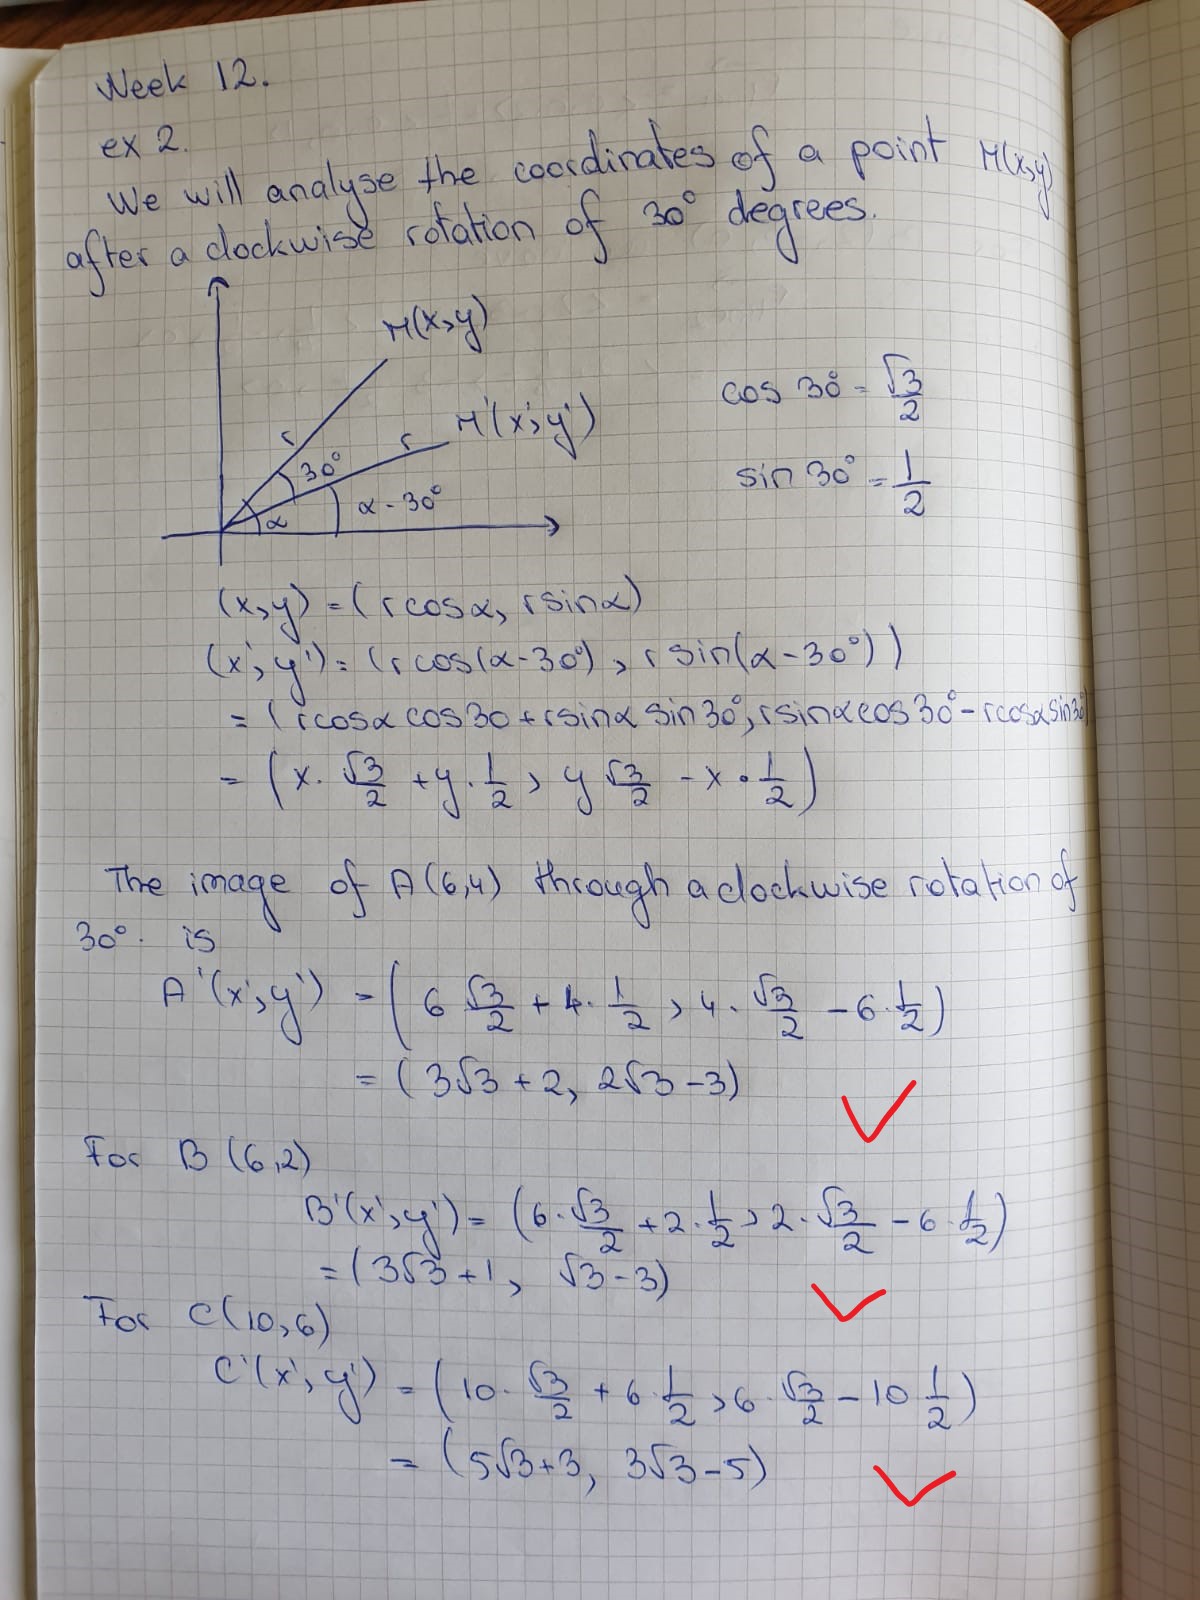 Week 12.
ex 2.
We will analyse the coordinates of a point M(x,y)
after a clockwise rotation of 30° degrees.
M(x,y)
M'(x',y')
r
r
30°
α
α - 30°
cos 30° = √3/2
sin 30° = 1/2
(x,y) = (r cos α, r sin α)
(x', y') = (r cos(α-30°), r sin(α-30°))
= (r cos α cos 30 + r sin α sin 30°, r sin α cos 30° - r cos α sin 30°)
= (x · √3/2 + y · 1/2, y √3/2 - x · 1/2)
The image of A(6,4) through a clockwise rotation of
30°. is
A'(x',y') = (6 √3/2 + 4 · 1/2, 4 · √3/2 - 6 · 1/2)
= (3√3 + 2, 2√3 - 3)
For B (6,2)
B'(x',y') = (6 · √3/2 + 2 · 1/2, 2 · √3/2 - 6 · 1/2)
= (3√3 + 1, √3 - 3)
For C(10,6)
C'(x', y') = (10 · √3/2 + 6 · 1/2, 6 · √3/2 - 10 1/2)
= (5√3 + 3, 3√3 - 5)